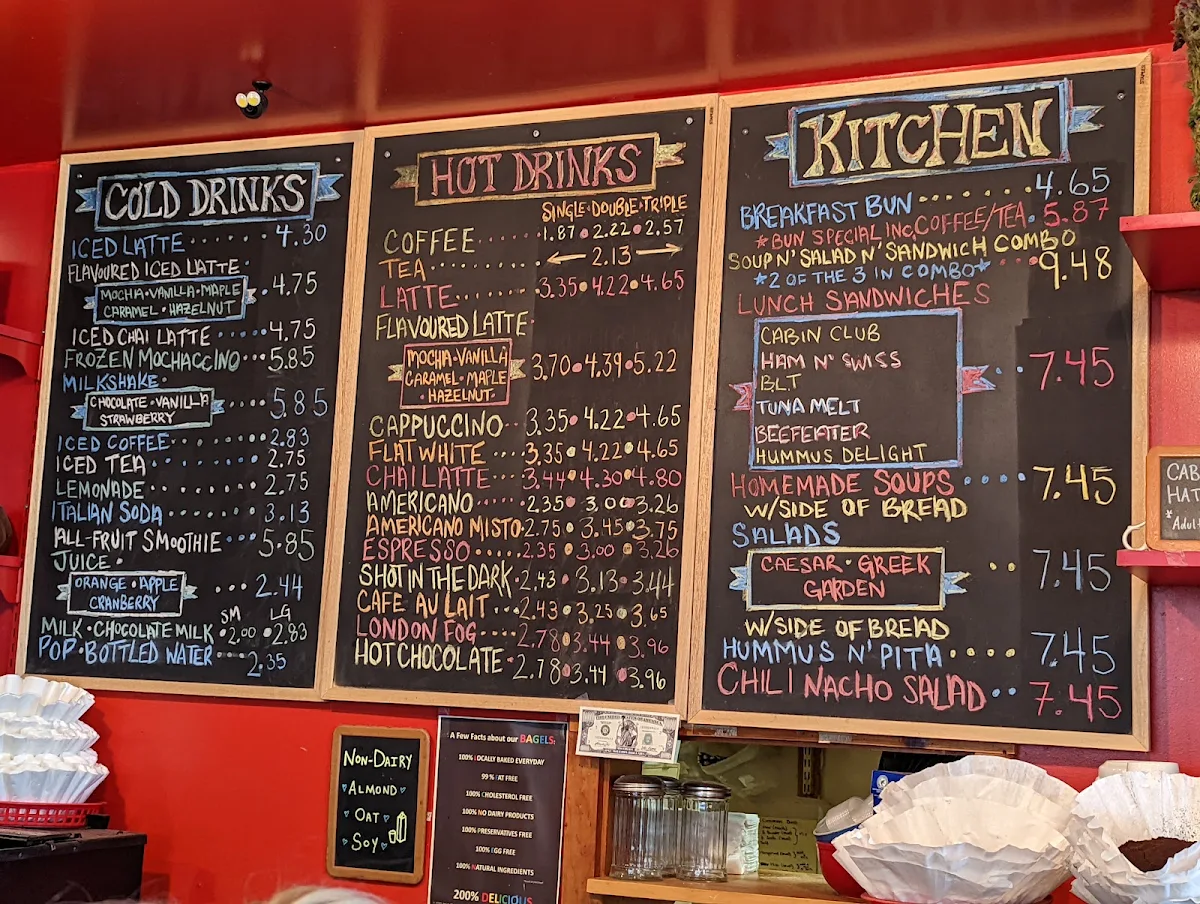 COLD DRINKS
ICED LATTE 4.30
FLAVOURED ICED LATTE
MOCHA • VANILLA • MAPLE
CARAMEL • HAZELNUT
4.75
ICED CHAI LATTE 4.75
FROZEN MOCHACCINO 5.85
MILKSHAKE
CHOCOLATE • VANILLA
STRAWBERRY
5.85
ICED COFFEE 2.83
ICED TEA 2.75
LEMONADE 2.75
ITALIAN SODA 3.13
ALL-FRUIT SMOOTHIE 5.85
JUICE
ORANGE • APPLE
CRANBERRY
2.44
SM LG
MILK • CHOCOLATE MILK • 2.00 • 2.83
POP • BOTTLED WATER 2.35
HOT DRINKS
SINGLE • DOUBLE • TRIPLE
COFFEE 1.87 • 2.22 • 2.57
TEA ← 2.13 →
LATTE 3.35 • 4.22 • 4.65
FLAVOURED LATTE
MOCHA • VANILLA
CARAMEL • MAPLE
• HAZELNUT •
3.70 • 4.39 • 5.22
CAPPUCCINO 3.35 • 4.22 • 4.65
FLAT WHITE 3.35 • 4.22 • 4.65
CHAI LATTE 3.44 • 4.30 • 4.80
AMERICANO 2.35 • 3.00 • 3.26
AMERICANO MISTO 2.75 • 3.45 • 3.75
ESPRESSO 2.35 • 3.00 • 3.26
SHOT IN THE DARK 2.43 • 3.13 • 3.44
CAFE AU LAIT 2.43 • 3.25 • 3.65
LONDON FOG 2.78 • 3.44 • 3.96
HOT CHOCOLATE 2.78 • 3.44 • 3.96
KITCHEN
BREAKFAST BUN 4.65
*BUN SPECIAL INC. COFFEE/TEA 5.87
SOUP N' SALAD N' SANDWICH COMBO
*2 OF THE 3 IN COMBO* 9.48
LUNCH SANDWICHES
CABIN CLUB
HAM N' SWISS
BLT
TUNA MELT
BEEFEATER
HUMMUS DELIGHT
7.45
HOMEMADE SOUPS 7.45
W/SIDE OF BREAD
SALADS
CAESAR • GREEK
GARDEN
7.45
W/SIDE OF BREAD
HUMMUS N' PITA 7.45
CHILI NACHO SALAD 7.45
CAB
HAT
*Adul
NON-DAIRY
ALMOND
OAT
SOY
A Few Facts about our BAGELS:
100% LOCALLY BAKED EVERYDAY
99% FAT FREE
100% CHOLESTEROL FREE
100% NO DAIRY PRODUCTS
100% PRESERVATIVES FREE
100% EGG FREE
100% NATURAL INGREDIENTS
200% DELICIOUS